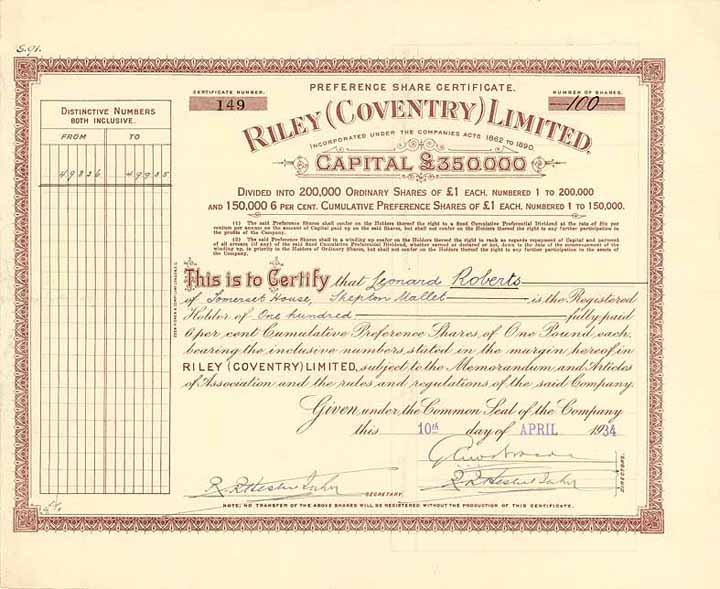 S.91.
CERTIFICATE NUMBER.
149
PREFERENCE SHARE CERTIFICATE.
NUMBER OF SHARES.
100
RILEY (COVENTRY) LIMITED,
INCORPORATED UNDER THE COMPANIES ACTS 1862 TO 1890.
CAPITAL £350,000
DIVIDED INTO 200,000 ORDINARY SHARES OF £1 EACH. NUMBERED 1 TO 200,000
AND 150,000 6 PER CENT. CUMULATIVE PREFERENCE SHARES OF £1 EACH, NUMBERED 1 TO 150,000.
(1) The said Preference Shares shall confer on the Holders thereof the right to a fixed Cumulative Preferential Dividend at the rate of Six per
centum per annum on the amount of Capital paid up on the said Shares, but shall not confer on the Holders thereof the right to any further participation in
the profits of the Company.
(2) The said Preference Shares shall in a winding up confer on the Holders thereof the right to rank as regards repayment of Capital and payment
of all arrears (if any) of the said fixed Cumulative Preferential Dividend, whether earned or declared or not, down to the date of the commencement of the
winding up, in priority to the Holders of Ordinary Shares, but shall not confer on the Holders thereof the right to any further participation in the assets
of the Company.
DISTINCTIVE NUMBERS
BOTH INCLUSIVE.
FROM TO
49836 49935
This is to Certify that Leonard Roberts
of Somerset House, Shepton Mallet is the Registered
Holder of One hundred fully paid
6 per cent Cumulative Preference Shares of One Pound each
bearing the inclusive numbers stated in the margin hereof in
RILEY (COVENTRY) LIMITED, subject to the Memorandum and Articles
of Association and the rules and regulations of the said Company.
Given under the Common Seal of the Company
this 10th day of APRIL 1934
DIRECTORS.
SECRETARY.
NOTE; NO TRANSFER OF THE ABOVE SHARES WILL BE REGISTERED WITHOUT THE PRODUCTION OF THIS CERTIFICATE.